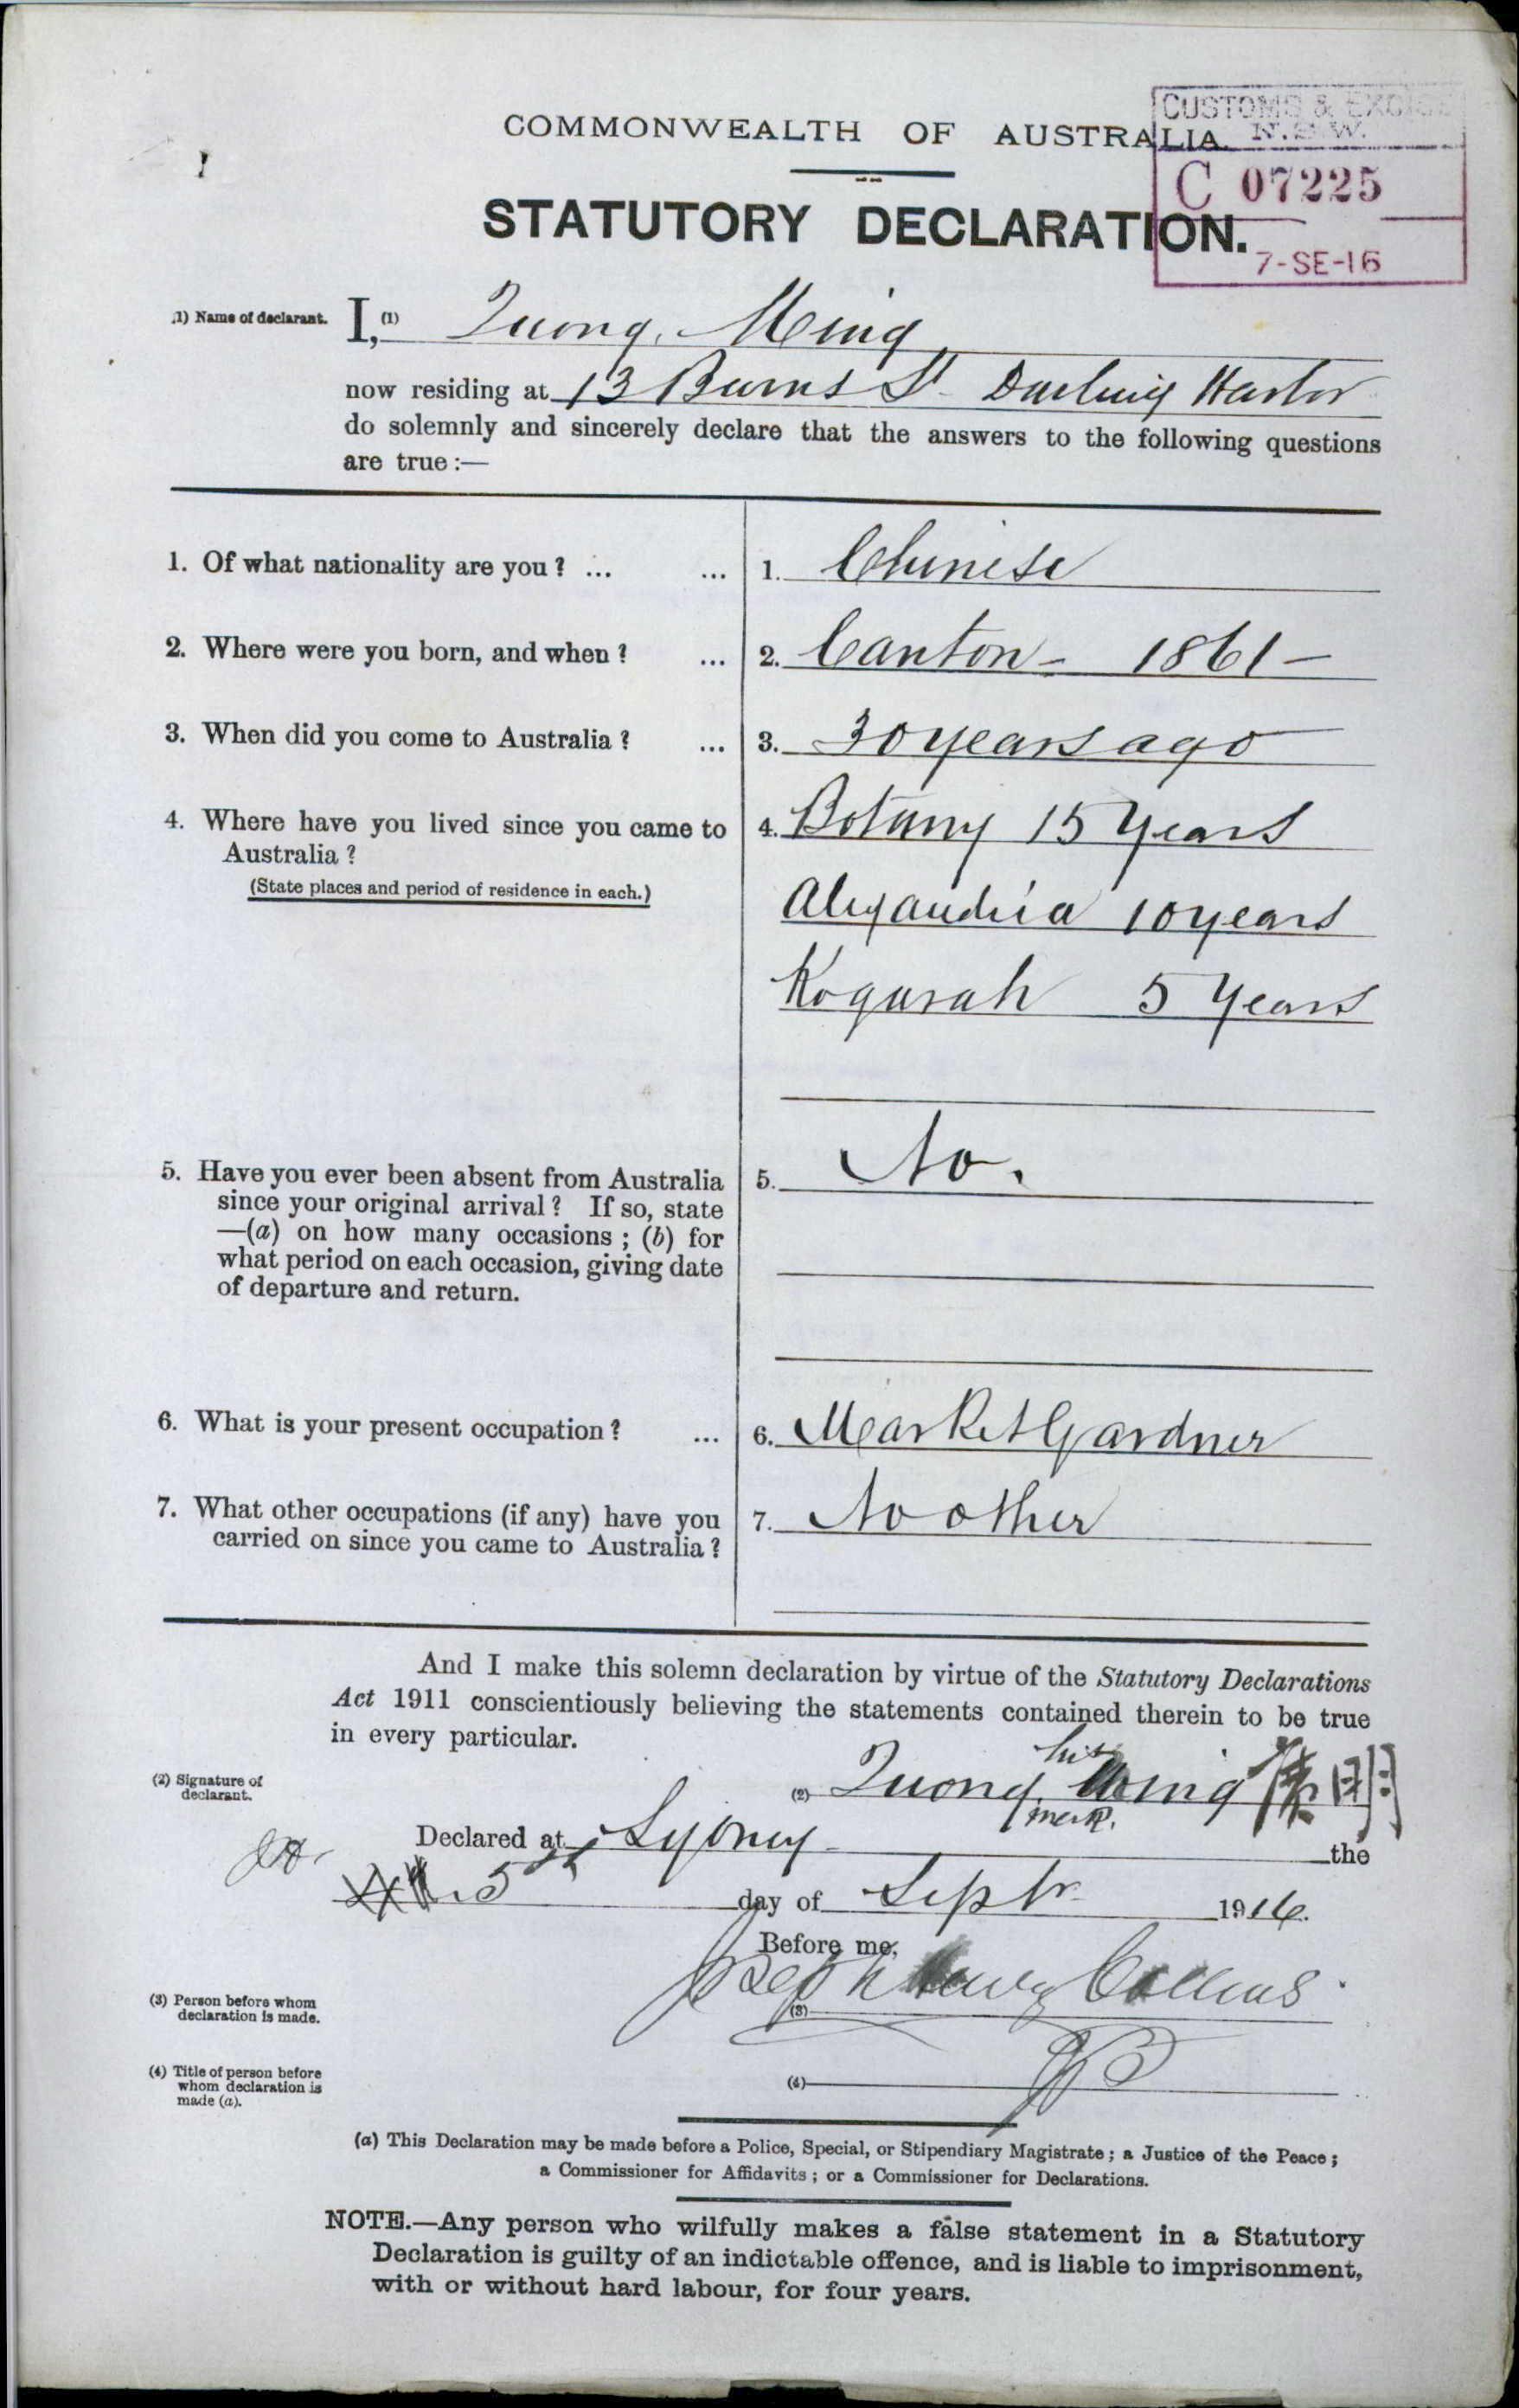 CUSTOMS & EXCISE
N.S.W.
C 07225
7-SE-16
COMMONWEALTH OF AUSTRALIA.
STATUTORY DECLARATION.
(1) Name of declarant. I, (1) Quong Ming
now residing at 13 Burns St Darling Harbor
do solemnly and sincerely declare that the answers to the following questions
are true :—
1. Of what nationality are you ? ... ... 1. Chinese
2. Where were you born, and when ? ... 2. Canton - 1861 -
3. When did you come to Australia ? ... 3. 30 years ago
4. Where have you lived since you came to 4. Botany 15 Years
Australia ?
(State places and period of residence in each.)
Alexandria 10 years
Kogarah 5 Years
5. Have you ever been absent from Australia 5. No.
since your original arrival ? If so, state
—(a) on how many occasions ; (b) for
what period on each occasion, giving date
of departure and return.
6. What is your present occupation ? ... 6. Market Gardner
7. What other occupations (if any) have you 7. No other
carried on since you came to Australia ?
And I make this solemn declaration by virtue of the Statutory Declarations
Act 1911 conscientiously believing the statements contained therein to be true
in every particular.
his
(2) Signature of declarant. (2) Quong Ming
mark.
Declared at Sydney the
5th day of Septr 1916.
Before me,
(3) Person before whom declaration is made. (3) Joseph Henry Collins
(4) Title of person before whom declaration is made (a). (4) JP
(a) This Declaration may be made before a Police, Special, or Stipendiary Magistrate ; a Justice of the Peace ;
a Commissioner for Affidavits ; or a Commissioner for Declarations.
NOTE.—Any person who wilfully makes a false statement in a Statutory
Declaration is guilty of an indictable offence, and is liable to imprisonment,
with or without hard labour, for four years.